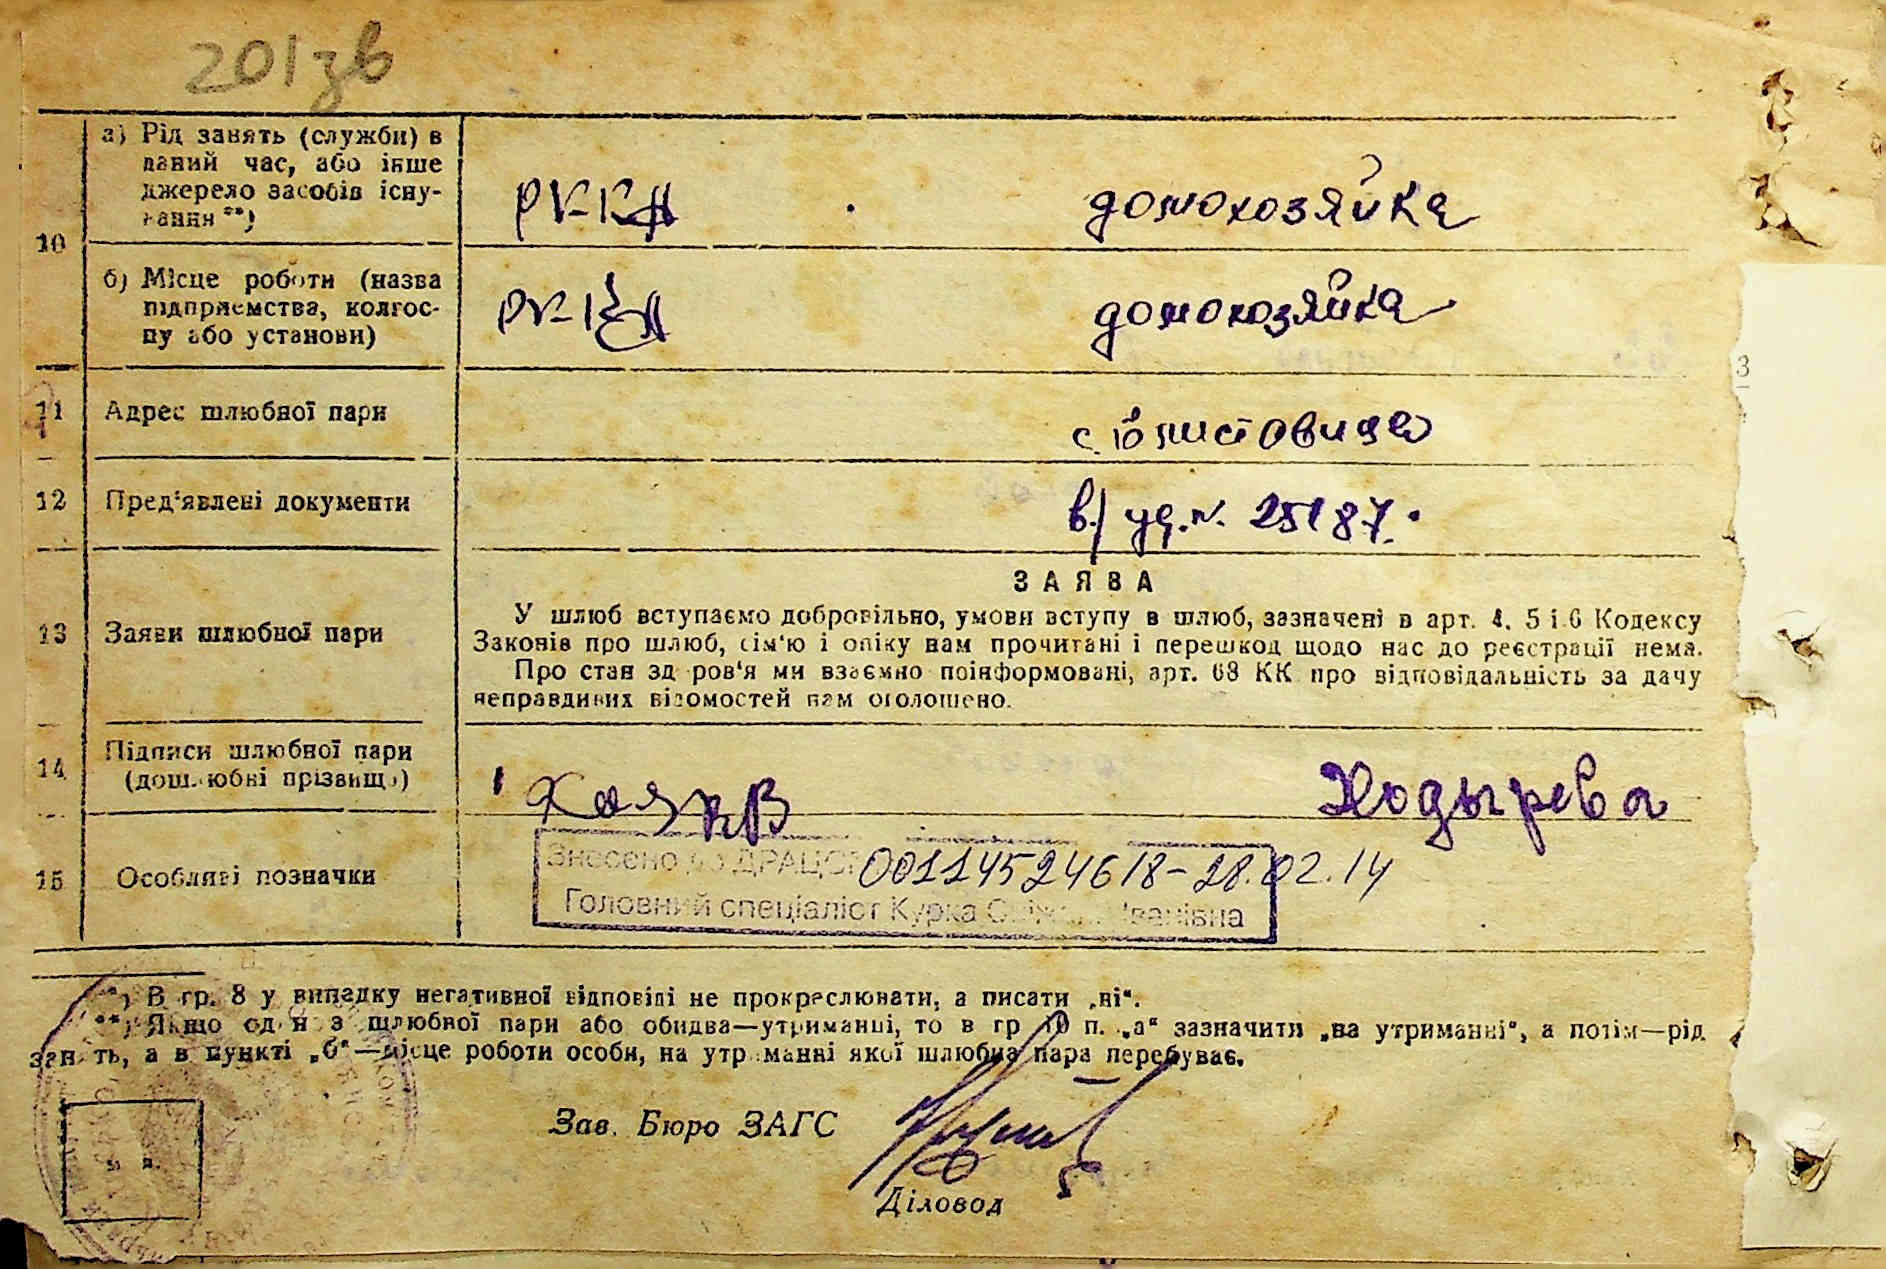 201зв
10
а) Рід занять (служби) в
даний час, або інше
джерело засобів існу-
вання **)
РККА
домохозяйка
б) Місце роботи (назва
підприємства, колгос-
пу або установи)
РККА
домохозяйка
11
Адрес шлюбної пари
с.
12
Пред'явлені документи
в/уд.N. 25187.
13
Заяви шлюбної пари
ЗАЯВА
У шлюб вступаємо добровільно, умови вступу в шлюб, зазначені в арт. 4, 5 і 6 Кодексу
Законів про шлюб, сім'ю і опіку нам прочитані і перешкод щодо нас до реєстрації нема.
Про стан здоров'я ми взаємно поінформовані, арт. 68 КК про відповідальність за дачу
неправдивих відомостей нам оголошено.
14
Підписи шлюбної пари
(дошлюбні прізвища)
Ходырева
15
Особливі позначки
Знесено до ДРАЦС 00114524618-28.02.14
Головний спеціаліст Курка Іванівна
*) В гр. 8 у випадку негативної відповіді не прокреслювати, а писати „ні“.
**) Якщо один з шлюбної пари або обидва—утриманці, то в гр 10 п. „а“ зазначити „на утриманні“, а потім—рід
занять, а в пункті „б“—місце роботи особи, на утриманні якої шлюбна пара перебуває.
Зав. Бюро ЗАГС
Діловод
м п.
3